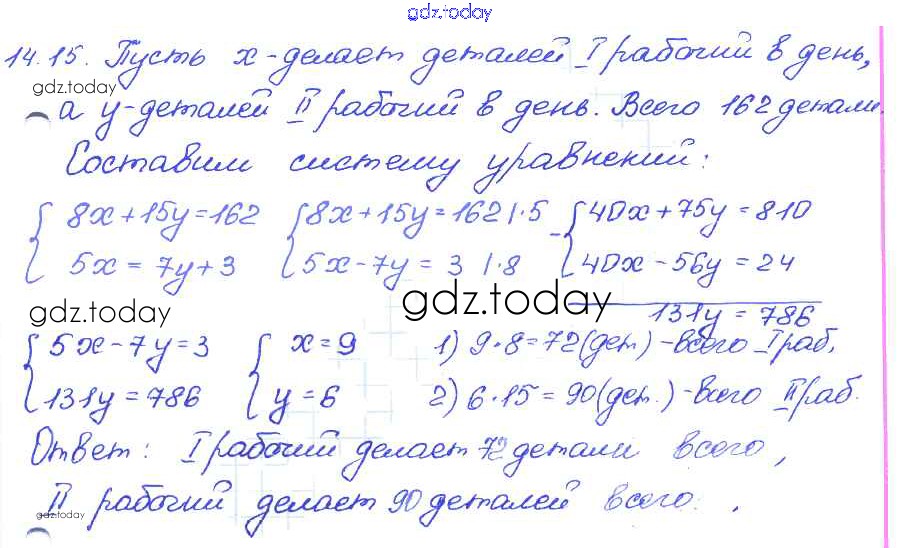 gdz.today
14.15. Пусть x-делает деталей I рабочий в день,
gdz.today
а y-деталей II рабочий в день. Всего 162 детали.
Составим систему уравнений:
{ 8x+15y=162 { 8x+15y=162 |·5 - { 40x+75y=810
5x=7y+3 5x-7y=3 |·8 40x-56y=24
gdz.today gdz.today 131y=786
{ 5x-7y=3 { x=9 1) 9·8=72(дет.)-всего I раб.
131y=786 y=6 2) 6·15=90(дет.)-всего II раб.
Ответ: I рабочий делает 72 детали всего,
II рабочий делает 90 деталей всего.
gdz.today